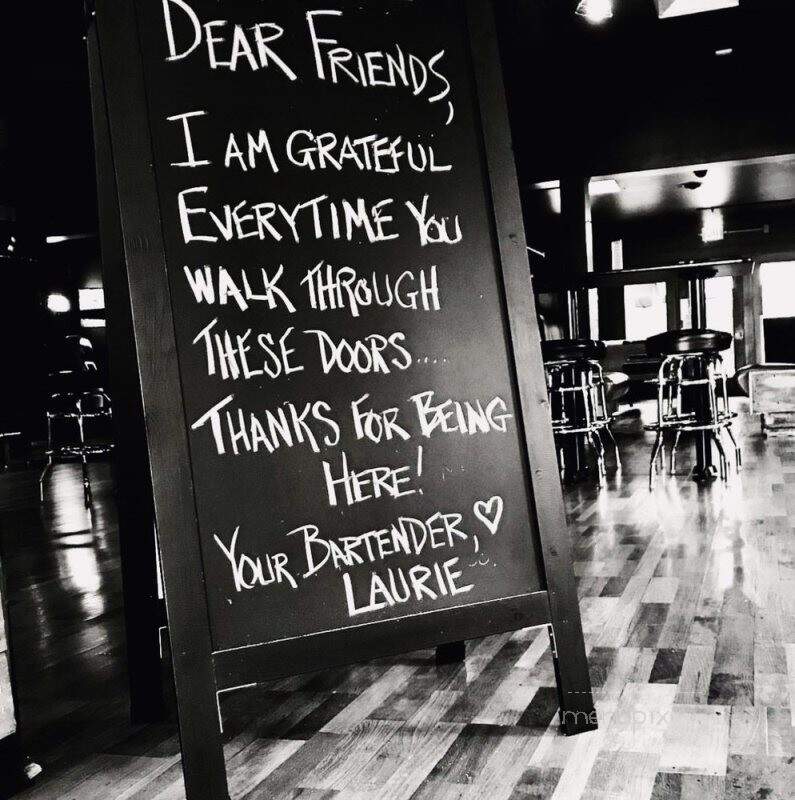 DEAR FRIENDS,
I AM GRATEFUL
EVERYTIME YOU
WALK THROUGH
THESE DOORS....
THANKS FOR BEING
HERE!
YOUR BARTENDER, ♡
LAURIE
menupix